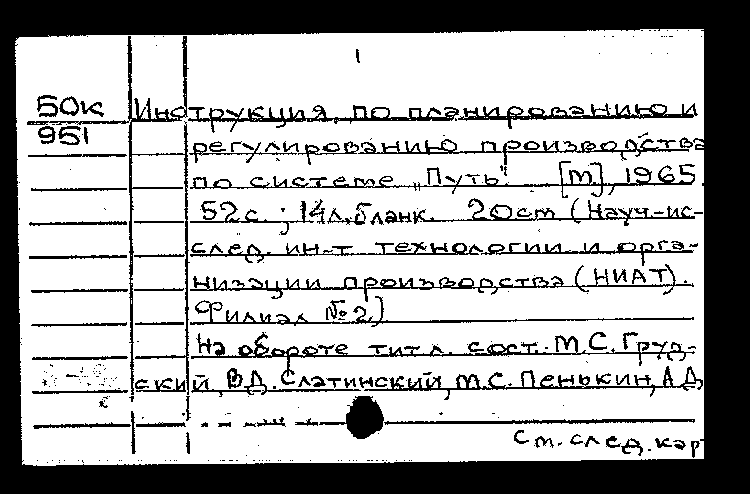 1
50к Инструкция по планированию и
951 регулированию производства
по системе „Путь". [М.], 1965.
52с.; 14л.бланк. 20см (Науч-ис-
след. ин-т технологии и орга-
низации производства (НИАТ).
Филиал №2.)
На обороте тит л. сост.: М.С. Груд-
ский, В.Д. Слатинский, М.С. Пенькин, А Д
См. след. кар